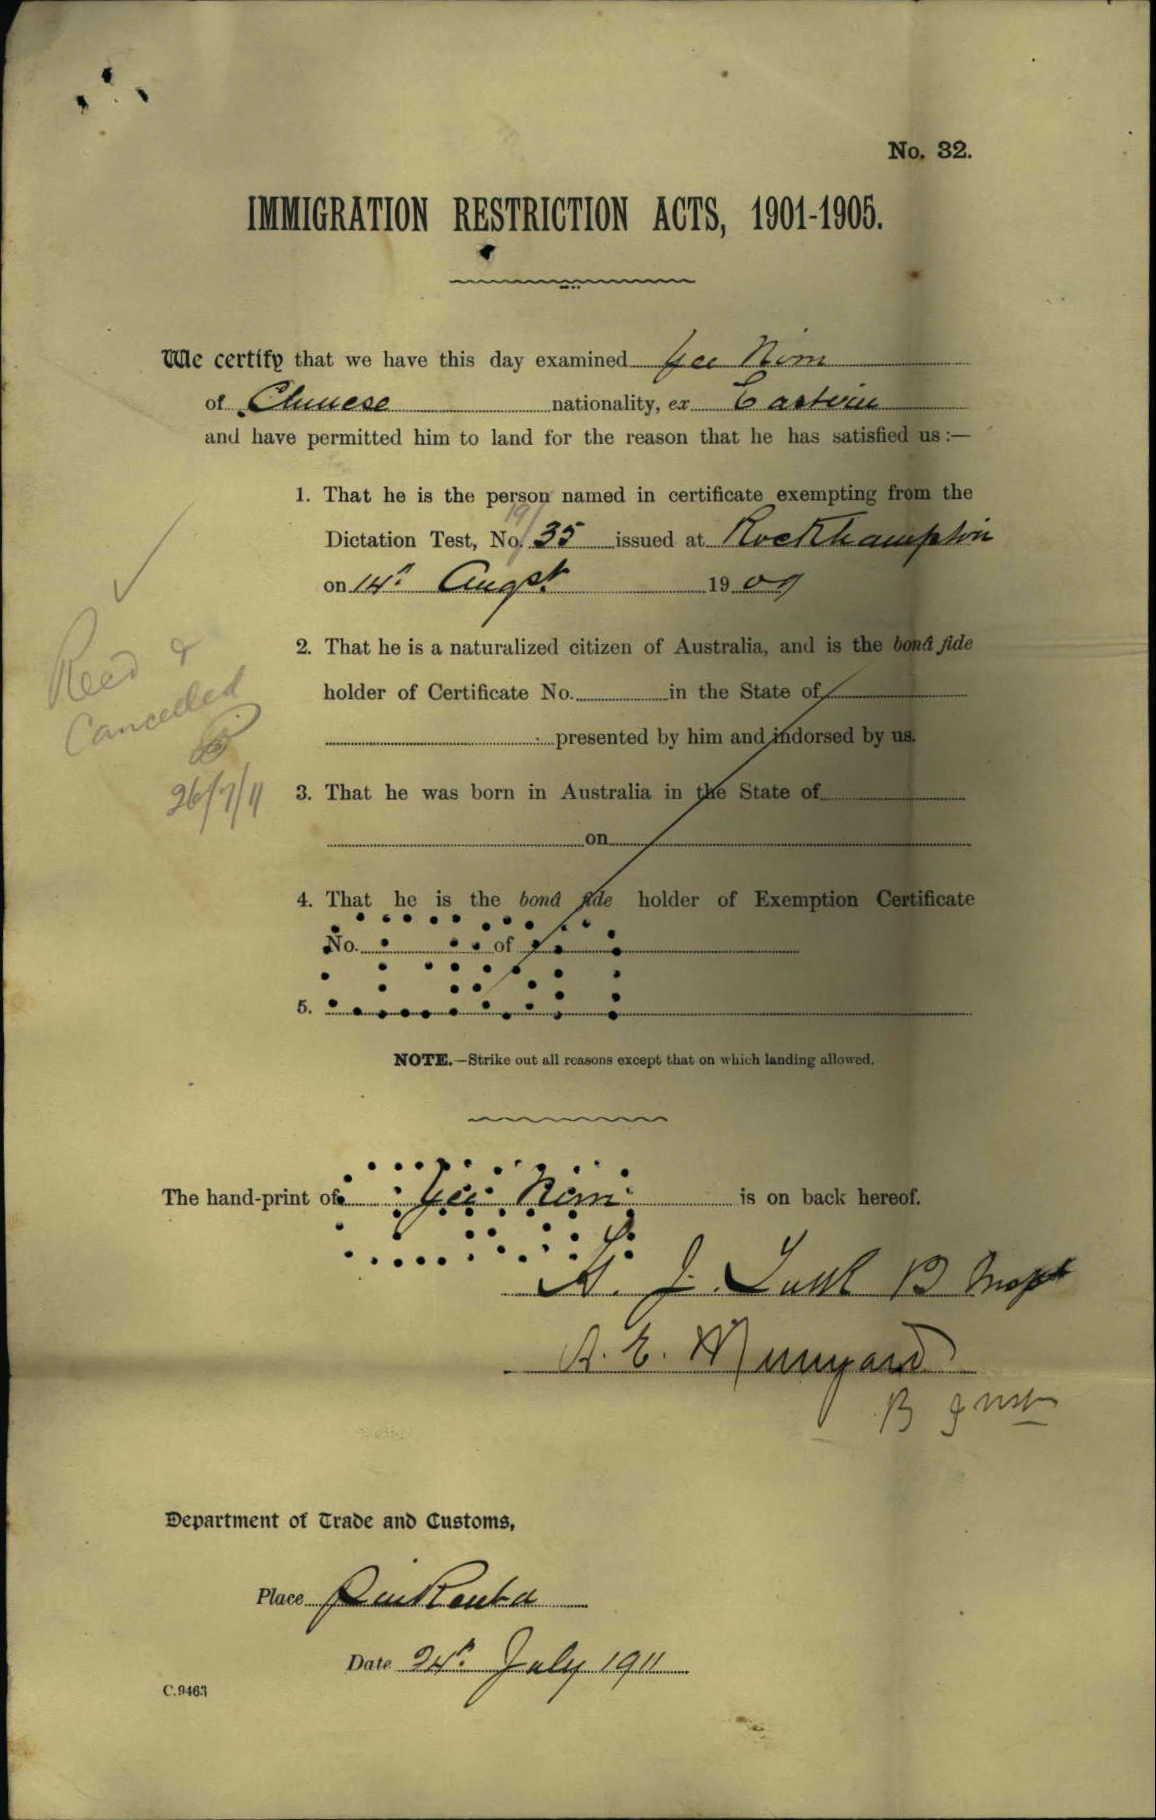 No. 32.
IMMIGRATION RESTRICTION ACTS, 1901-1905.
We certify that we have this day examined Yee Nim
of Chinese nationality, ex Eastern
and have permitted him to land for the reason that he has satisfied us :—
1. That he is the person named in certificate exempting from the
Dictation Test, No. 35 issued at Rockhampton
on 14th Augst. 1909
2. That he is a naturalized citizen of Australia, and is the bonâ fide
holder of Certificate No. in the State of
presented by him and indorsed by us.
3. That he was born in Australia in the State of
on
4. That he is the bonâ fide holder of Exemption Certificate
No. of
5.
Recd &
Cancelled
26/7/11
NOTE.—Strike out all reasons except that on which landing allowed.
The hand-print of Yee Nim is on back hereof.
J.
A. E.
Department of Trade and Customs,
Place Pinkenba
Date 24th July 1911
C.9463